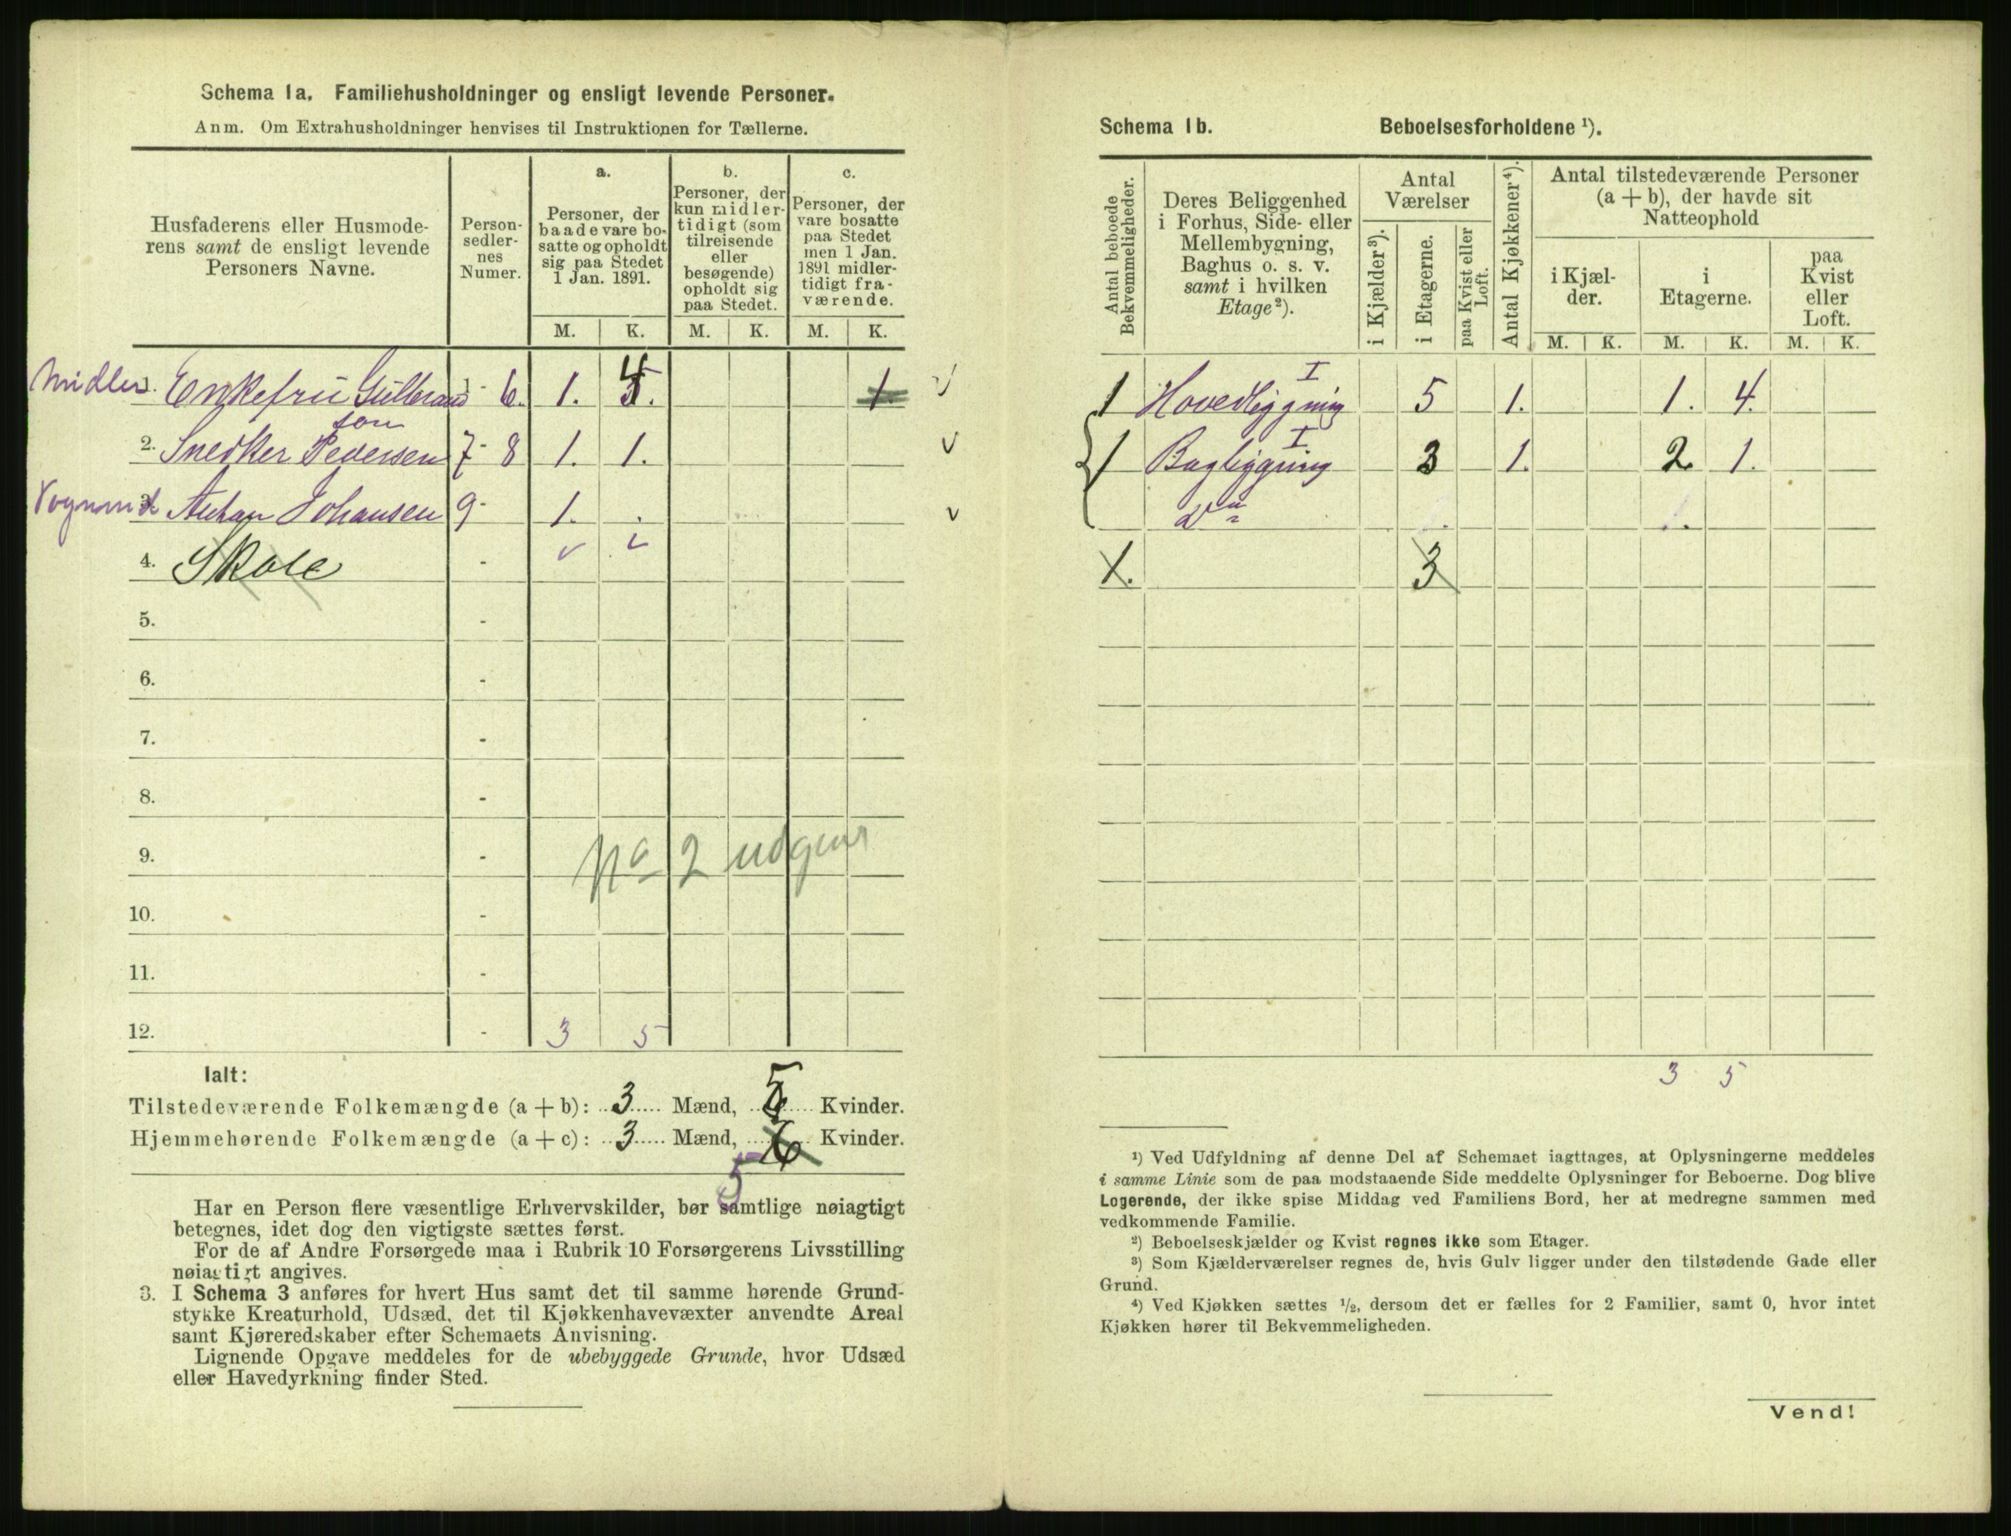 Schema 1a. Familiehusholdninger og ensligt levende Personer.
Anm. Om Extrahusholdninger henvises til Instruktionen for Tællerne.
Husfaderens eller Husmode-
rens samt de ensligt levende
Personers Navne.
Person-
sedler-
nes
Numer.
a.
Personer, der
baade vare bo-
satte og opholdt
sig paa Stedet
1 Jan. 1891.
b.
Personer, der
kun midler-
tidigt (som
tilreisende
eller
besøgende)
opholdt sig
paa Stedet.
c.
Personer, der
vare bosatte
paa Stedet
men 1 Jan.
1891 midler-
tidigt fra-
værende.
M. K. M. K. M. K.
Enkefru 1 - 6. 1. 4 1.
son
2. Snedker Pedersen 7 - 8 1. 1.
3. Johansen 9 - 1.
4. Skole -
5. -
6. -
7. -
8. -
9. - No 2 udgaar
10. -
11. -
12. - 3 5
Ialt:
Tilstedeværende Folkemængde (a + b): 3 Mænd, 5 Kvinder.
Hjemmehørende Folkemængde (a + c): 3 Mænd, 6 Kvinder.
5
Har en Person flere væsentlige Erhvervskilder, bør samtlige nøiagtigt
betegnes, idet dog den vigtigste sættes først.
For de af Andre Forsørgede maa i Rubrik 10 Forsørgerens Livsstilling
nøiagtigt angives.
3. I Schema 3 anføres for hvert Hus samt det til samme hørende Grund-
stykke Kreaturhold, Udsæd, det til Kjøkkenhavevæxter anvendte Areal
samt Kjøreredskaber efter Schemaets Anvisning.
Lignende Opgave meddeles for de ubebyggede Grunde, hvor Udsæd
eller Havedyrkning finder Sted.
Schema 1b. Beboelsesforholdene ¹).
Antal beboede
Bekvemmeligheder.
Deres Beliggenhed
i Forhus, Side- eller
Mellembygning,
Baghus o. s. v.
samt i hvilken
Etage²).
Antal
Værelser
i Kjælder³).
i Etagerne.
paa Kvist eller
Loft.
Antal Kjøkkener⁴).
Antal tilstedeværende Personer
(a + b), der havde sit
Natteophold
i Kjæl-
der.
i
Etagerne.
paa
Kvist
eller
Loft.
M. K. M. K. M. K.
I
1 Hovedbygning 5 1. 1. 4.
I
1 Bagbygning 3 1. 2 1.
1. 3
3 5
¹) Ved Udfyldning af denne Del af Schemaet iagttages, at Oplysningerne meddeles
i samme Linie som de paa modstaaende Side meddelte Oplysninger for Beboerne. Dog blive
Logerende, der ikke spise Middag ved Familiens Bord, her at medregne sammen med
vedkommende Familie.
²) Beboelseskjælder og Kvist regnes ikke som Etager.
³) Som Kjælderværelser regnes de, hvis Gulv ligger under den tilstødende Gade eller
Grund.
⁴) Ved Kjøkken sættes ½, dersom det er fælles for 2 Familier, samt 0, hvor intet
Kjøkken hører til Bekvemmeligheden.
Vend!